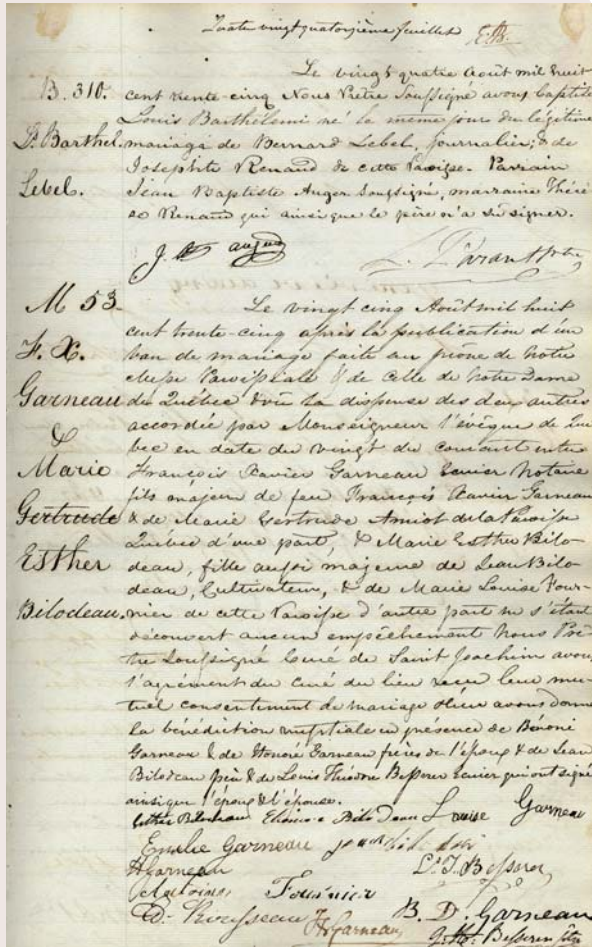 vingt quatorzième feuillet E.B.
B. 310.
Ls Barthel.
Lebel.
Le vingt quatre Août mil huit
cent trente-cinq Nous Prêtre Soussigné avons baptisé
Louis Barthélemi né le même jour du légitime
mariage de Bernard Lebel, journalier, & de
Josephte Renaud de cette Paroisse. Parrain
Jean Baptiste Auger soussigné, marraine Thérè
se Renaud qui ainsi que le père n'a su signer.
J. B. auger
Parant Ptre
M 53
F. X.
Garneau
&
Marie
Gertrude
Esther
Bilodeau.
Le vingt cinq Août mil huit
cent trente-cinq après la publication d'un
ban de mariage faite au prône de notre
Messe Paroissiale & de celle de Notre Dame
de Québec & vu la dispense des deux autres
accordée par Monseigneur l'évêque de Qué
bec en date du vingt du courant entre
François Xavier Garneau Ecuier Notaire
fils majeur de feu François Xavier Garneau
& de Marie Gertrude Amiot de la Paroisse
Québec d'une part, & Marie Esther Bilo-
deau, fille aussi majeure de Jean Bilo-
deau, Cultivateur, & de Marie Louise Four-
nier de cette Paroisse d'autre part ne s'étant
découvert aucun empêchement Nous Prê-
tre Soussigné Curé de Saint Joachim avons
l'agrément du curé du lieu recu leur mu-
tuel consentement de mariage & leur avons donné
la bénédiction nuptiale en présence de Bénoni
Garneau & de Honoré Garneau frères de l'époux & de Jean
Bilodeau père & de Louis Théodore Besserer Ecuier qui ont signé
ainsi que l'époux & l'épouse.
Esther Bilodeau Bilodeau Louise Garneau
Emelie Garneau
H Garneau Ls T. Besserer
Antoine Fournier
D. Rousseau B. D. Garneau
FX Garneau G. H. Besserer Ptre